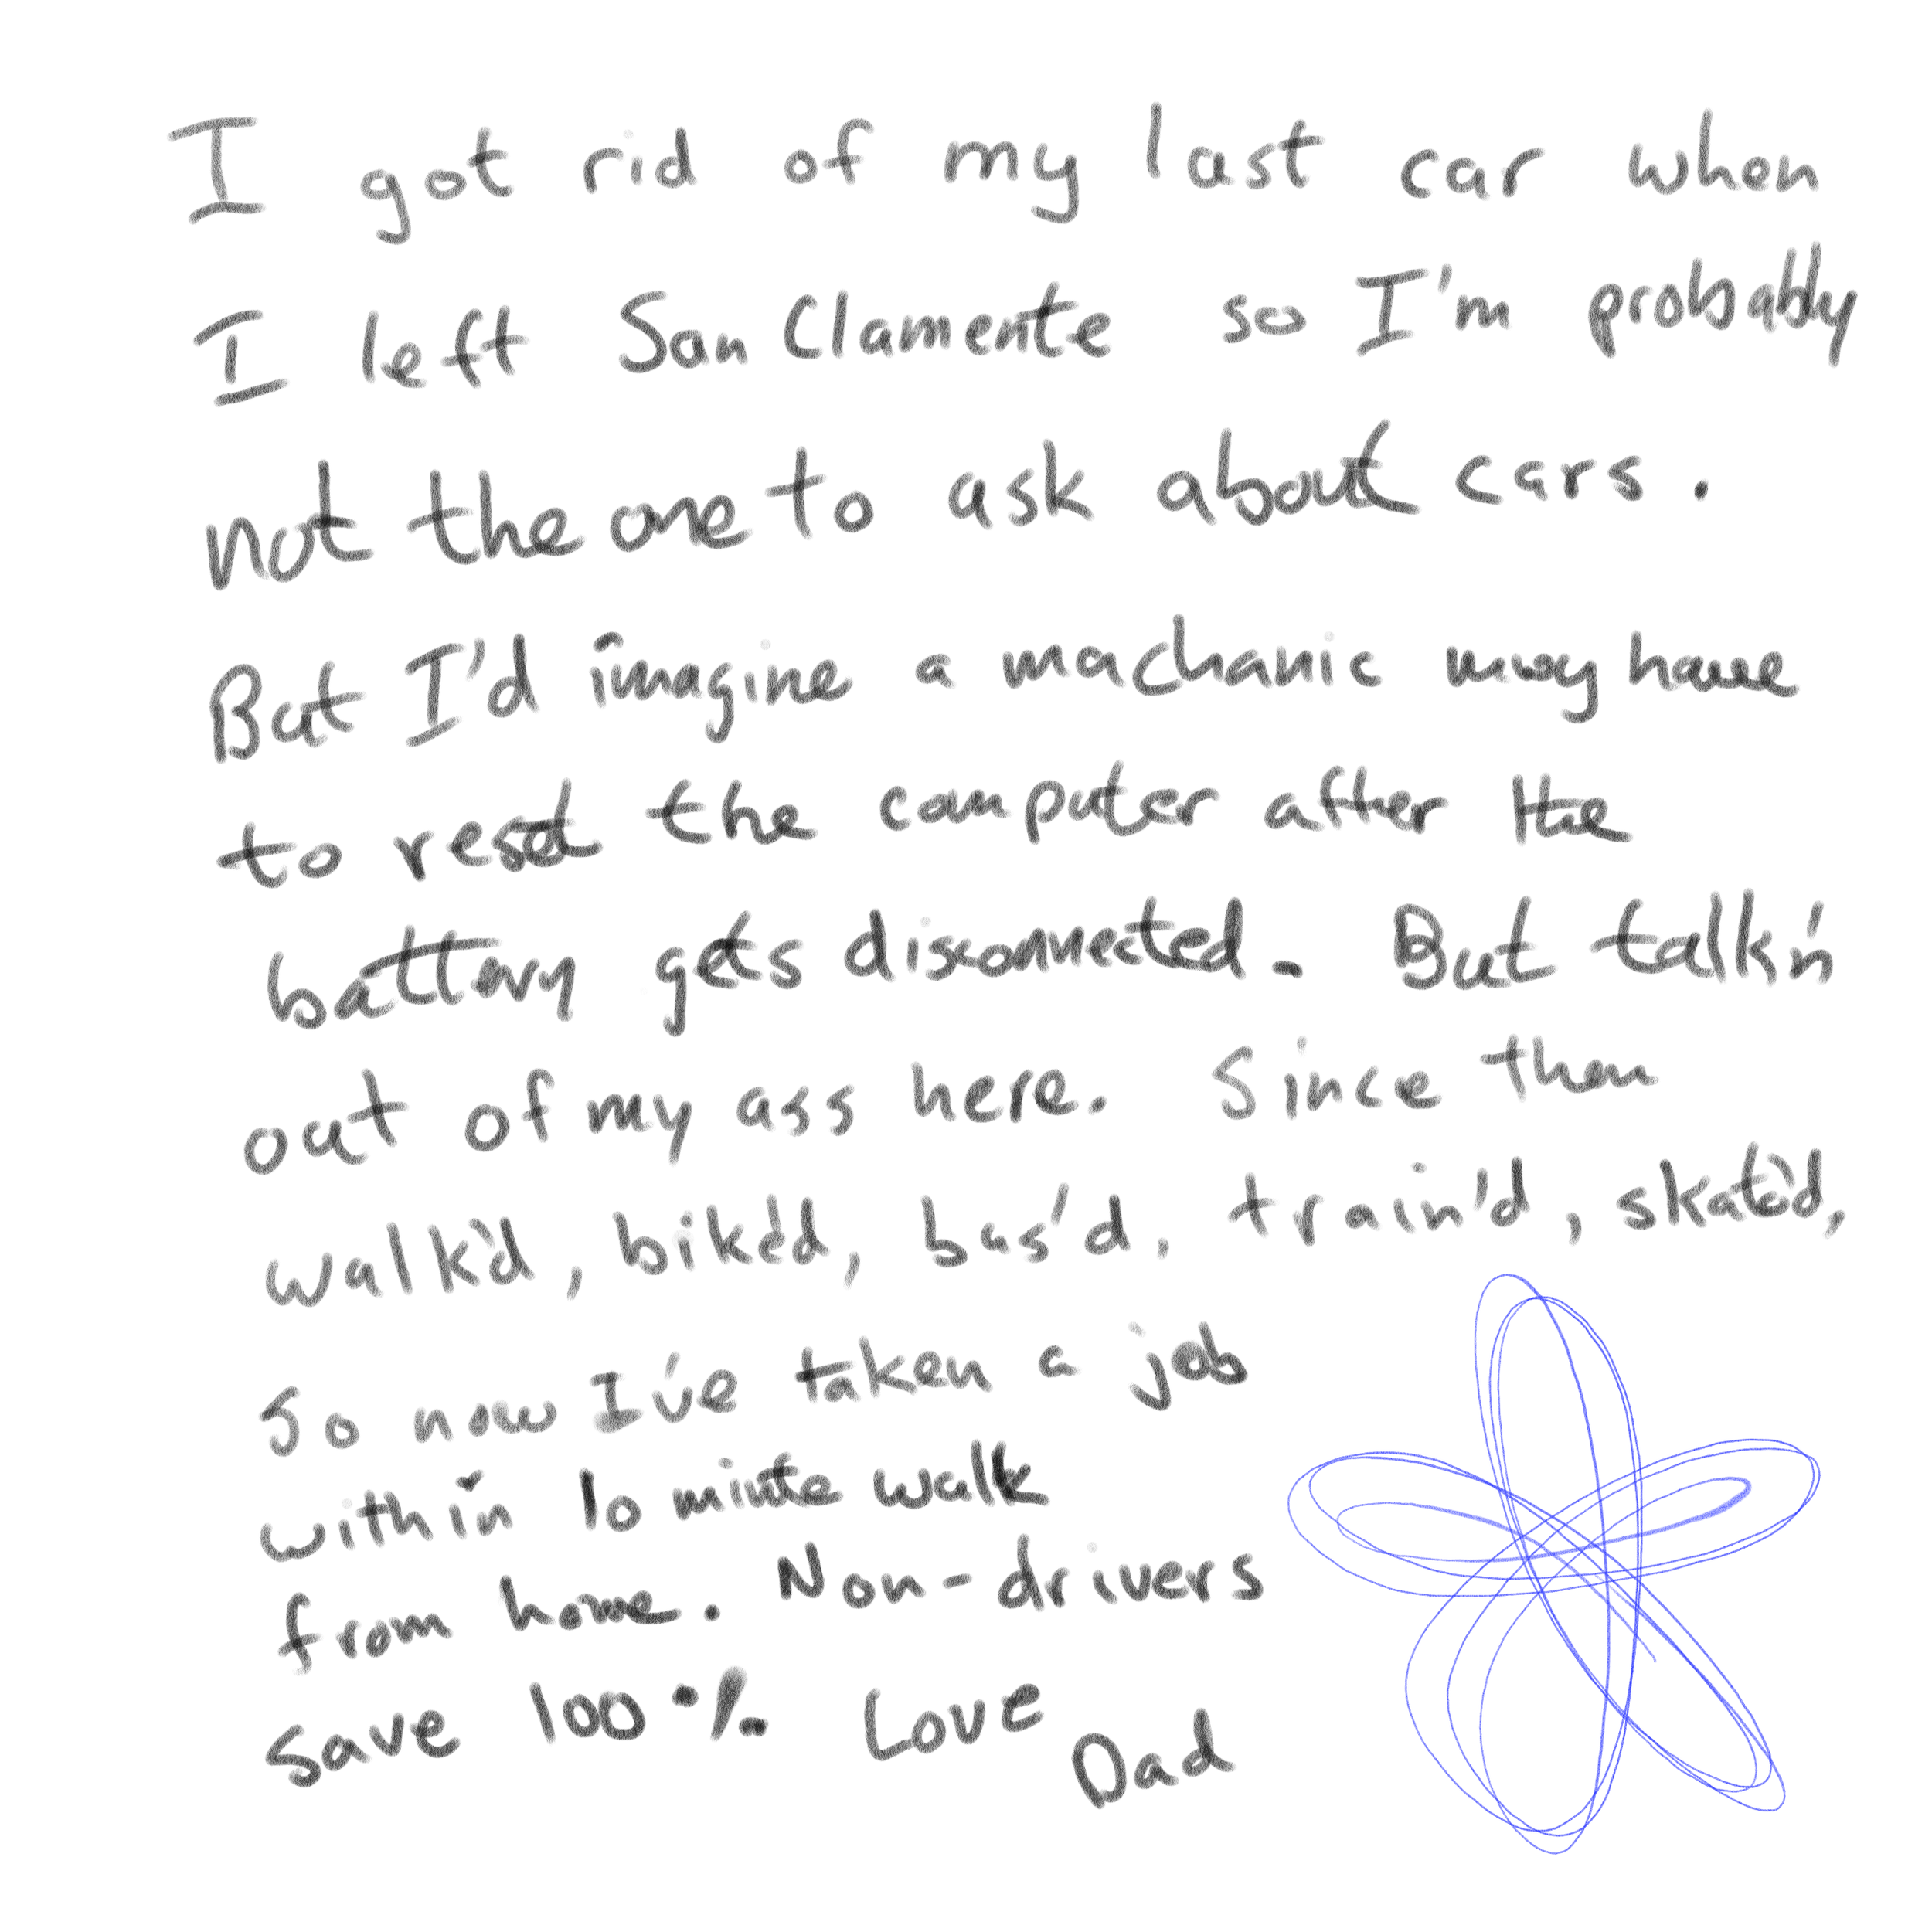 I got rid of my last car when
I left San Clamente so I'm probably
not the one to ask about cars.
But I'd imagine a machanic may have
to reset the computer after the
battery gets disconnected. But talk'n
out of my ass here. Since then
walk'd, bike'd, bus'd, train'd, skate'd,
So now I've taken a job
within 10 minte walk
from home. Non-drivers
save 100% Love
Dad